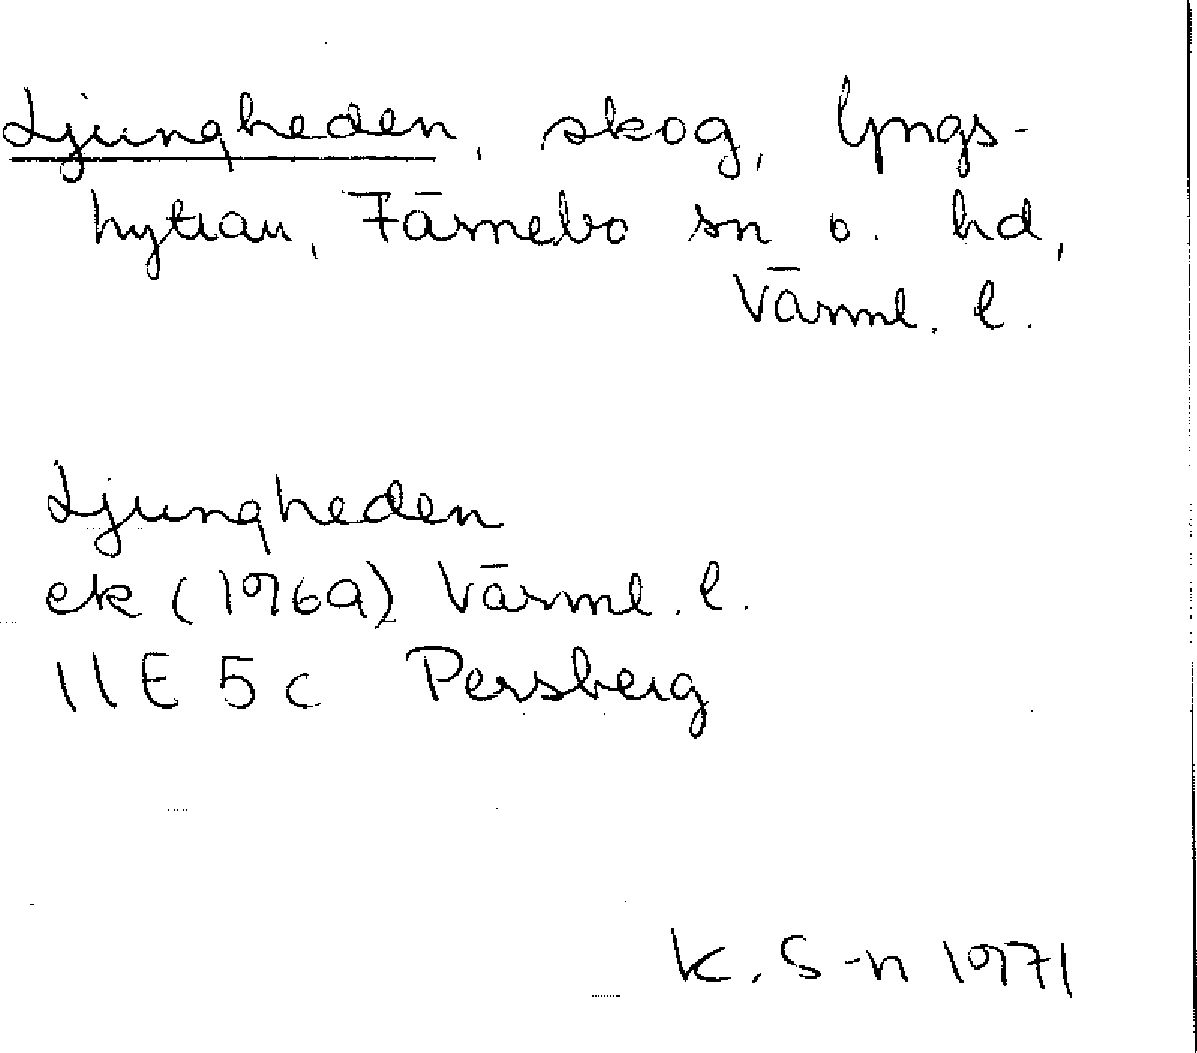 Ljungheden, skog, Lyngs-
hyttan, Färnebo sn o. hd,
Värml. l.
Ljungheden
ek (1969) Värml. l.
11E 5c Persberg
K. S-n 1971